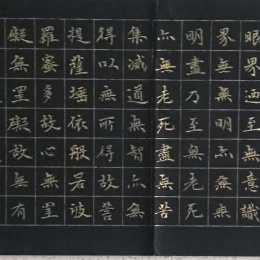 眼界迺至無意識
界無無明亦無無
明盡乃至無老死
亦無老死盡無苦
集滅道無智亦無
得以無所得故菩
提薩埵依般若波
羅蜜多故心無罣
礙無罣礙故無有